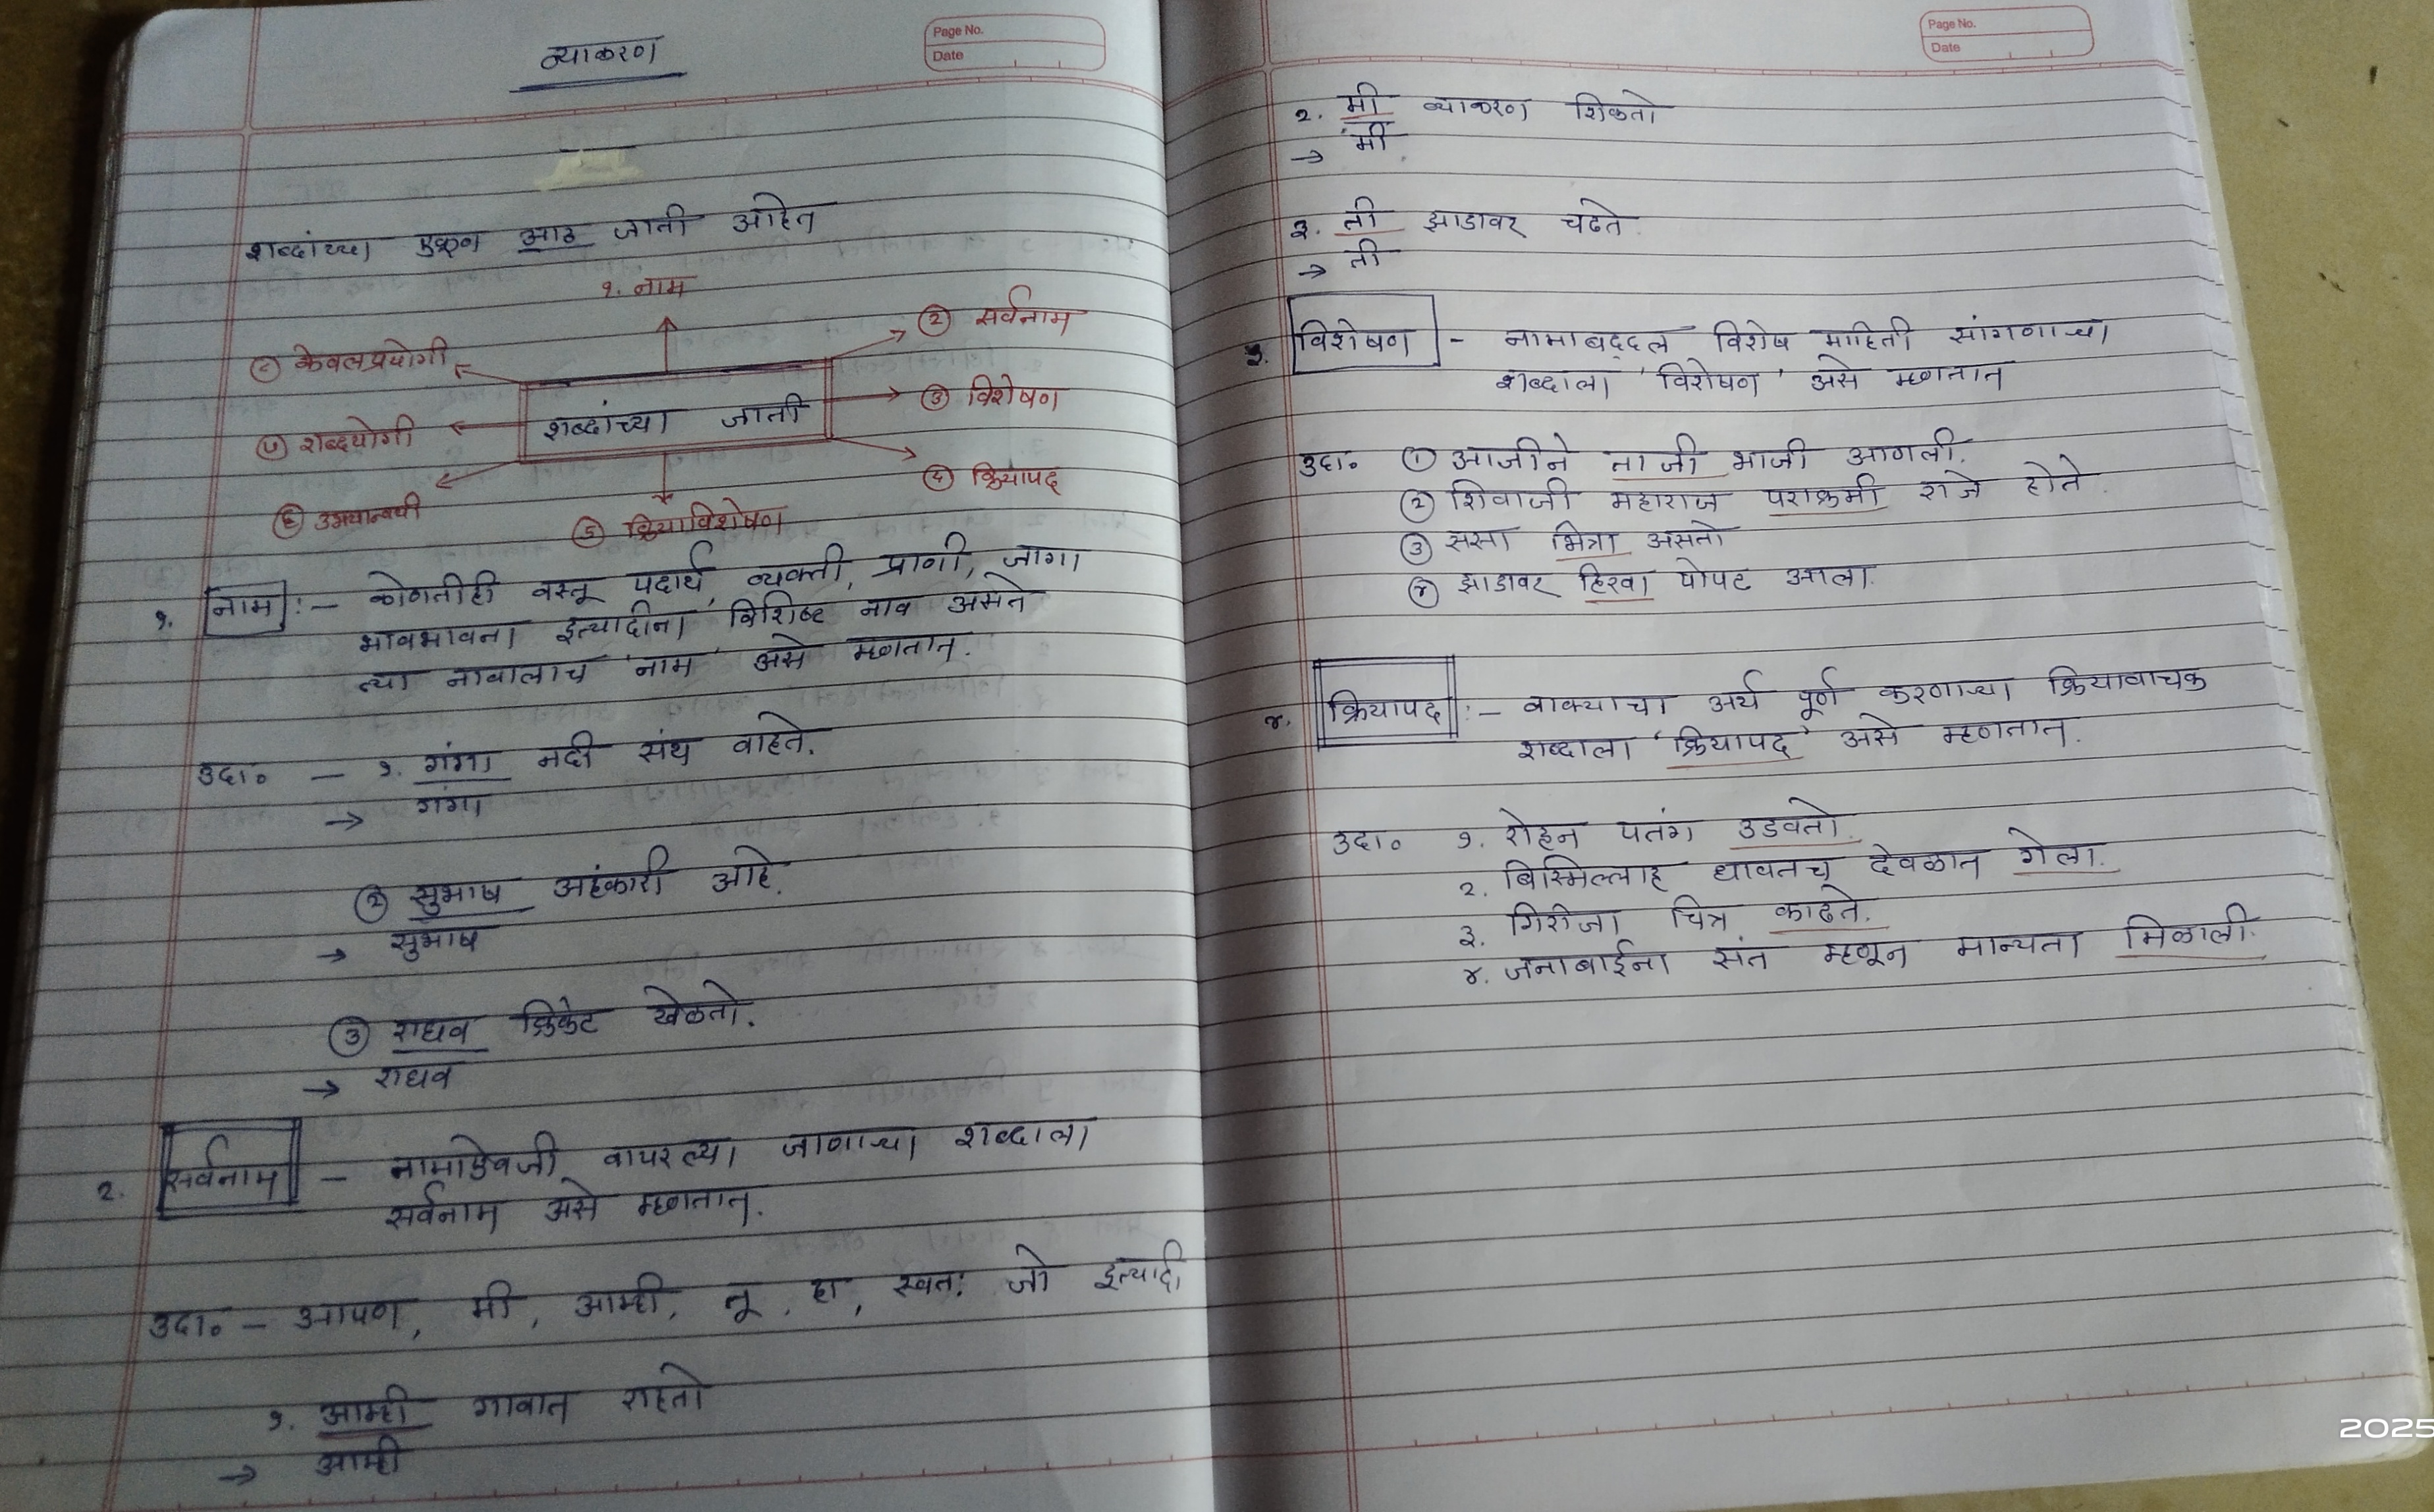 Page No.
Date
व्याकरण
शब्दांच्या एकूण आठ जाती आहेत
१. नाम
② सर्वनाम
③ विशेषण
④ क्रियापद
⑤ क्रियाविशेषण
⑥ उभयान्वयी
⑦ शब्दयोगी
⑧ केवलप्रयोगी
शब्दांच्या जाती
१. नाम :- कोणतीही वस्तू पदार्थ, व्यक्ती, प्राणी, जागा
भावभावना इत्यादींना विशिष्ट नाव असते
त्या नावालाच 'नाम' असे म्हणतात.
उदा० - १. गंगा नदी संथ वाहते.
→ गंगा
② सुभाष अहंकारी आहे.
→ सुभाष
③ राघव क्रिकेट खेळतो.
→ राघव
२. सर्वनाम - नामाऐवजी वापरल्या जाणाऱ्या शब्दाला
सर्वनाम असे म्हणतात.
उदा० - आपण, मी, आम्ही, तू, हा, स्वतः जो इत्यादी
१. आम्ही गावात राहतो
→ आम्ही
Page No.
Date
२. मी व्याकरण शिकतो
→ मी
३. ती झाडावर चढते
→ ती
३. विशेषण - नामाबद्दल विशेष माहिती सांगणाऱ्या
शब्दाला 'विशेषण' असे म्हणतात
उदा० ① आजीने ताजी भाजी आणली.
② शिवाजी महाराज पराक्रमी राजे होते.
③ ससा भित्रा असतो
④ झाडावर हिरवा पोपट आला.
४. क्रियापद :- वाक्याचा अर्थ पूर्ण करणाऱ्या क्रियावाचक
शब्दाला 'क्रियापद' असे म्हणतात.
उदा० १. रोहन पतंग उडवतो.
२. बिस्मिल्लाह धावतच देवळात गेला.
३. गिरीजा चित्र काढते.
४. जनाबाईंना संत म्हणून मान्यता मिळाली.
2025